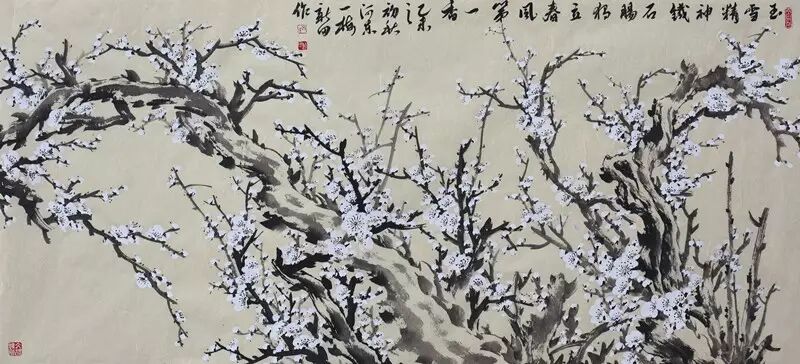 玉雪精神鐵石腸独立春风第一香
乙未
初秋
河东
一梅
新田
作